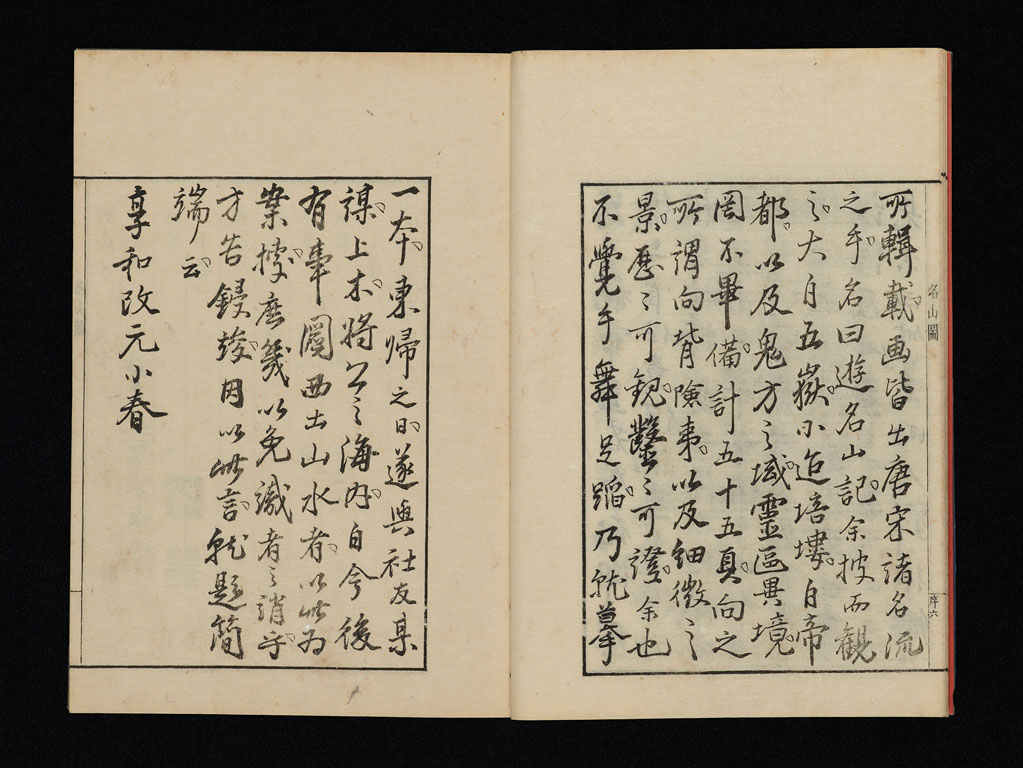 所輯載画皆出唐宋諸名流
之手名曰遊名山記余披而観
之大自五嶽小迨培塿自帝
都以及鬼方之域靈區異境
罔不畢備計五十五頁向之
所謂向背險夷以及細微之
景歴々可親鑿々可證余也
不覺手舞足蹈乃就摹
名山圖
序六
一本東歸之日遂與社友某
謀上木將公之海内自今後
有事圖西土山水者以此為
案據庶幾以免識者之誚乎
方告鋟竣因以此言就題簡
端云
享和改元小春